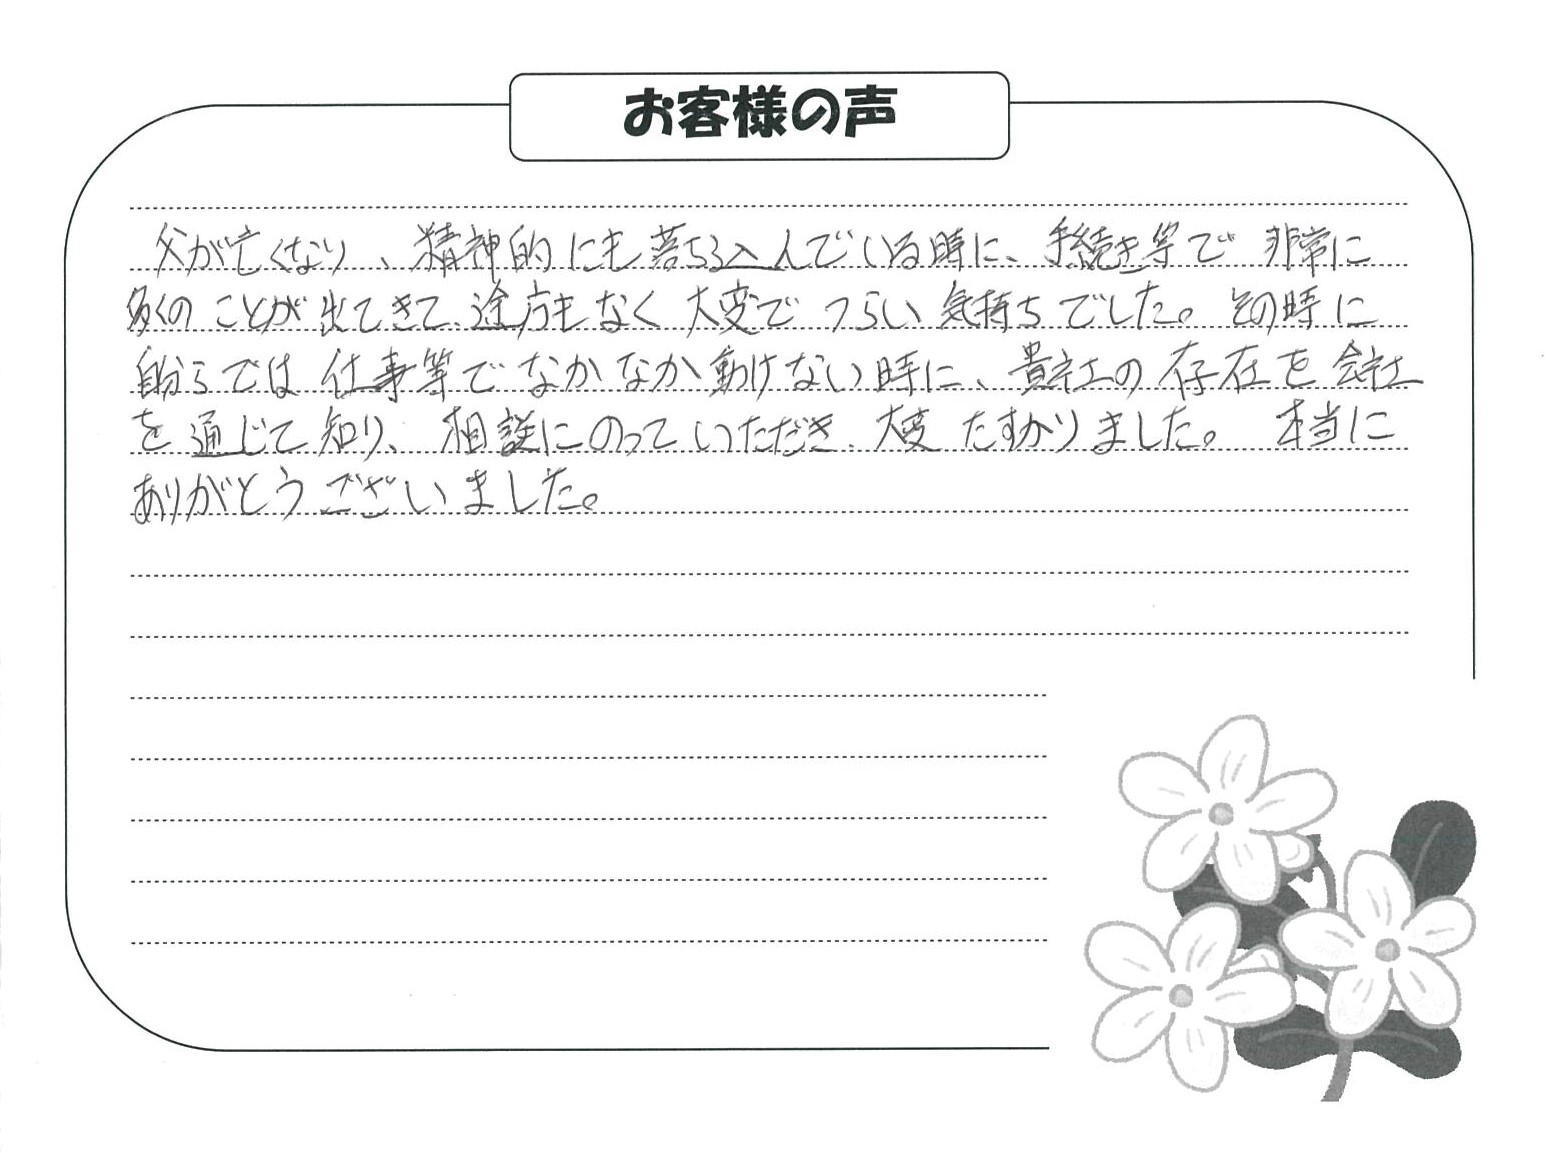 お客様の声
父が亡くなり、精神的にも落ち込んでいる時に、手続き等で非常に
多くのことが出てきて、途方もなく大変でつらい気持ちでした。その時に
自分らでは仕事等でなかなか動けない時に、貴社の存在を会社
を通じて知り、相談にのっていただき、大変たすかりました。本当に
ありがとうございました。